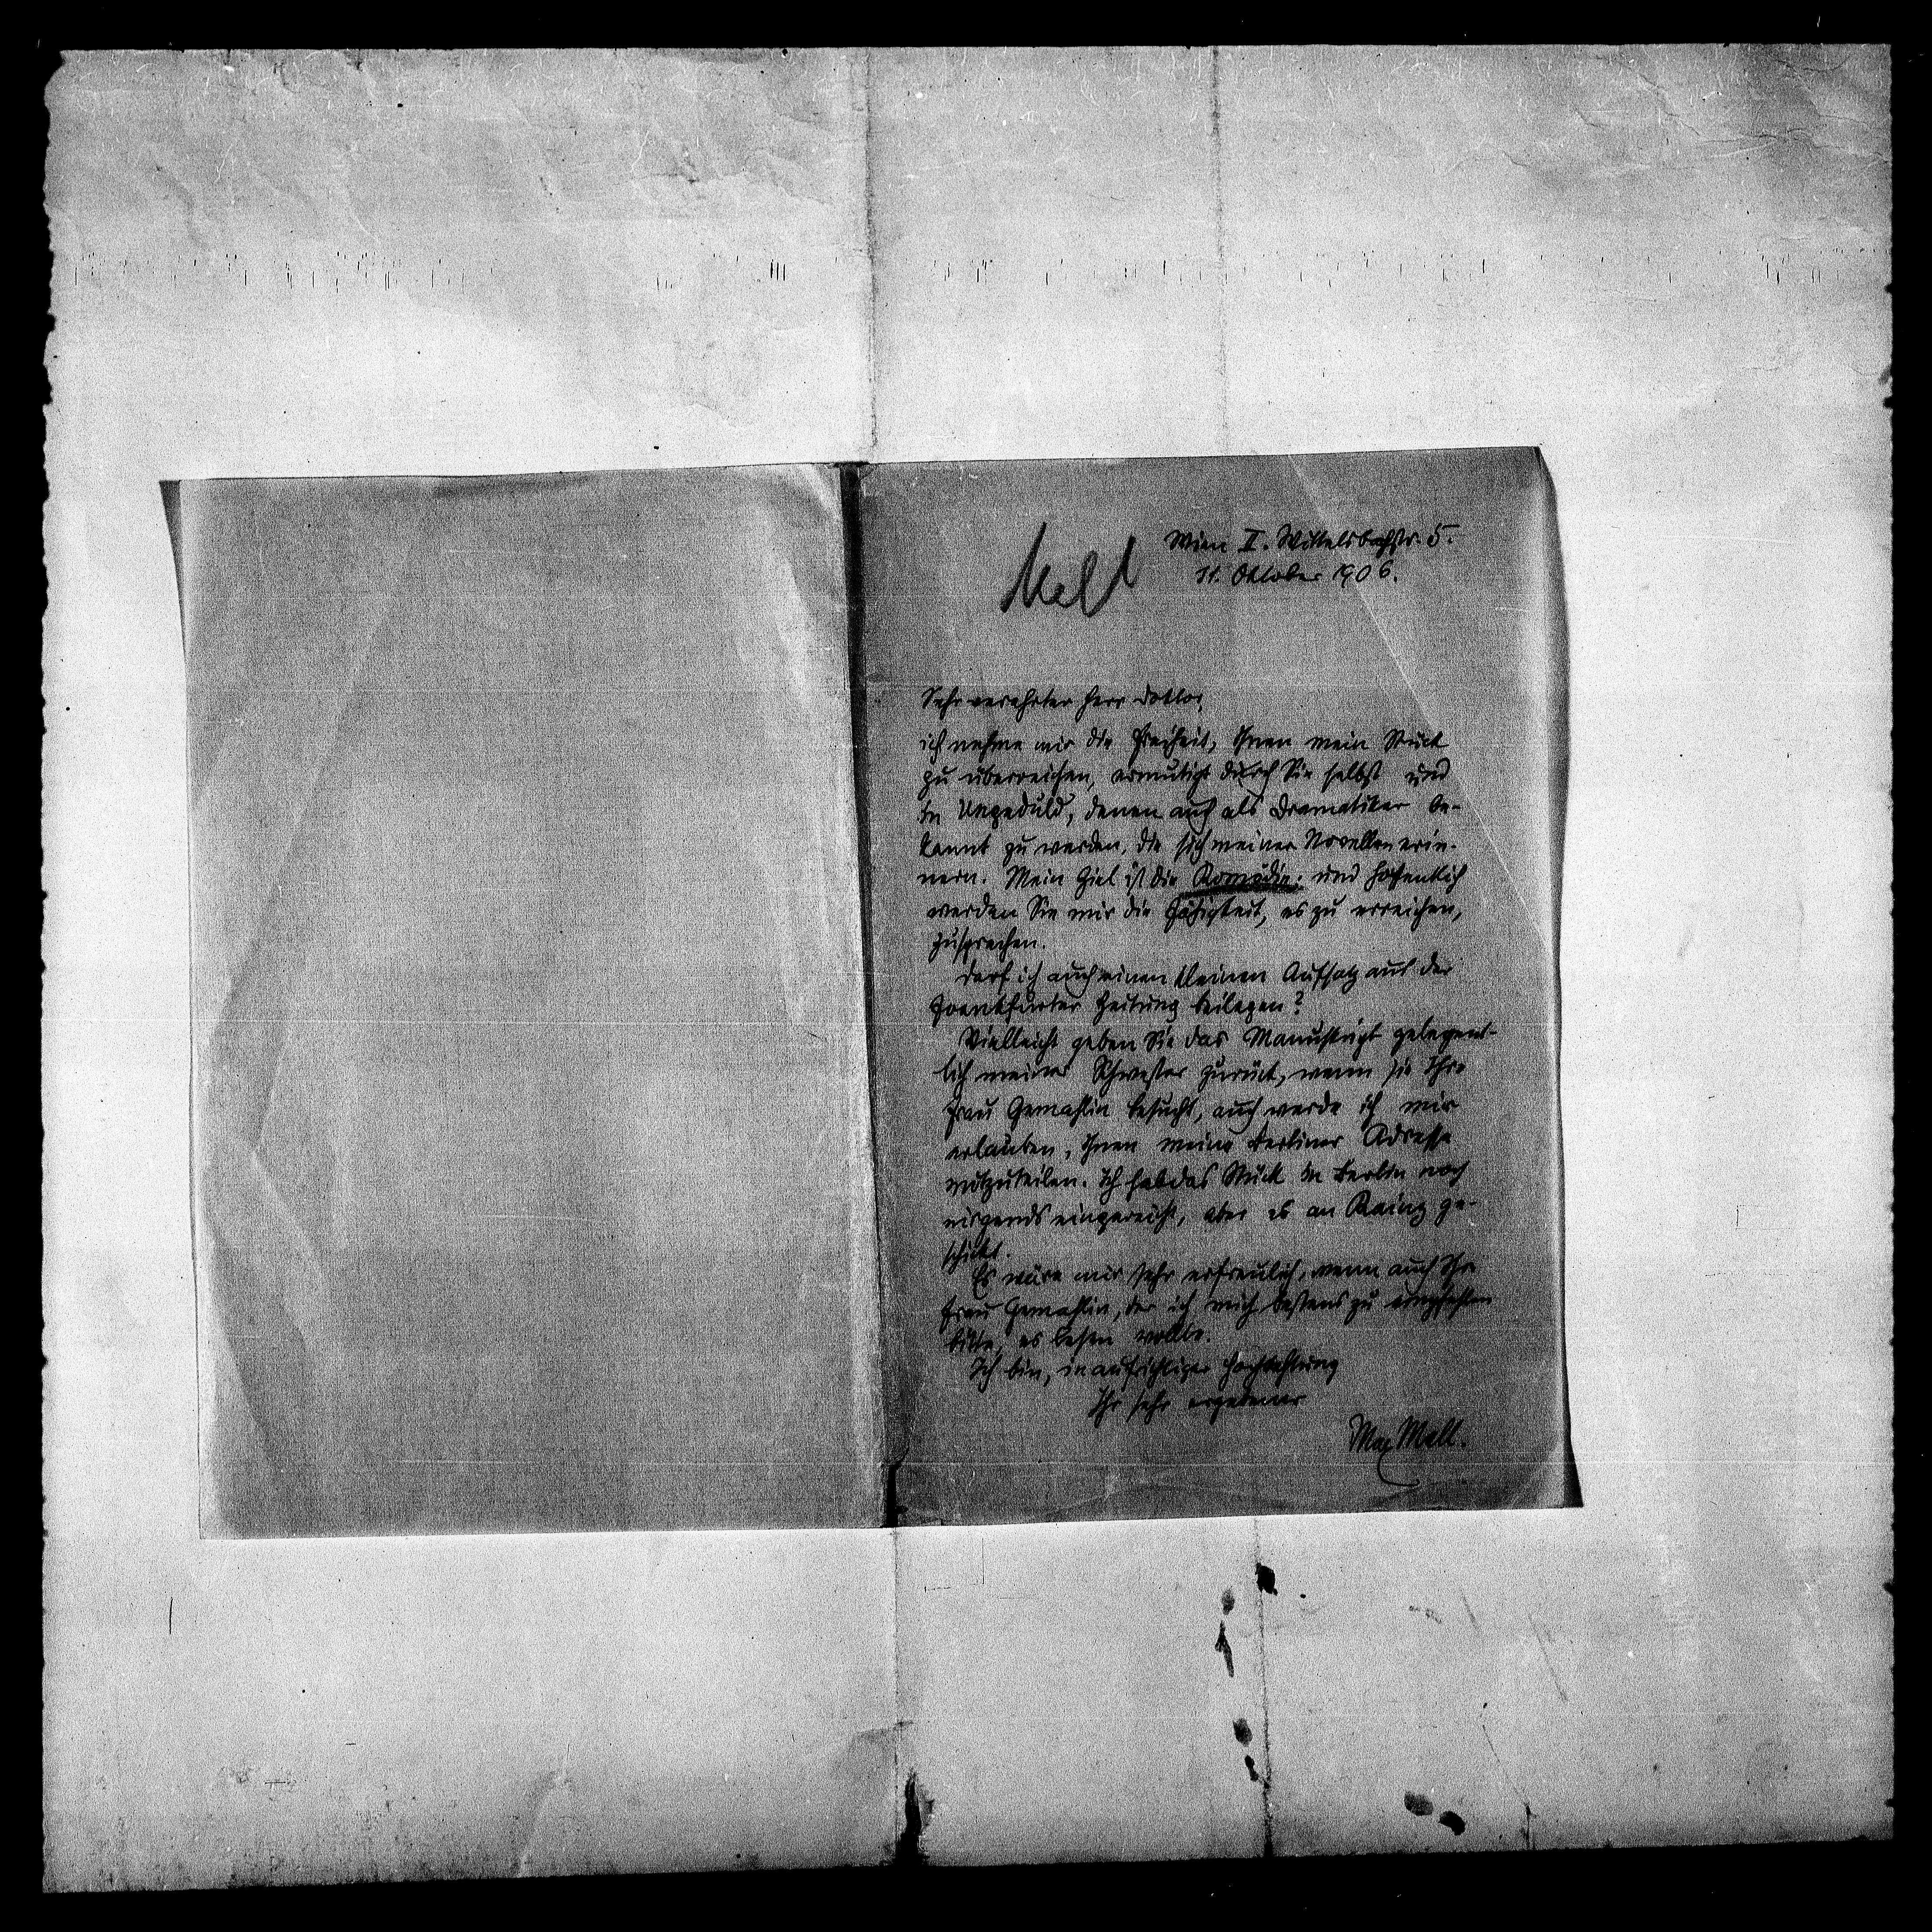 Mell
Wien II. Wittelsbachstr. 5.
11. Oktober 1906.
Sehr verehrter Herr Doktor,
ich nehme mir die Freiheit, Ihnen mein Stück
zu überreichen, ermutigt durch Sie selbst und
in Ungeduld, denen auch als Dramatiker be-
kannt zu werden, die sich meiner Novellen erin-
nern. Mein Ziel ist die Komödie: und hoffentlich
werden Sie mir die Fähigkeit, es zu erreichen,
zusprechen.
Darf ich auch einen kleinen Aufsatz aus der
Frankfurter Zeitung beilegen?
Vielleicht geben Sie das Manuskript gelegent-
lich meiner Schwester zurück, wenn sie Ihre
Frau Gemahlin besucht, auch werde ich mir
erlauben, Ihnen meine Berliner Adresse
mitzuteilen. Ich hab das Stück in Berlin noch
nirgends eingereicht, aber es an Kainz ge-
schickt.
Es wäre mir sehr erfreulich, wenn auch Ihre
Frau Gemahlin, der ich mich bestens zu empfehlen
bitte, es lesen wollte.
Ich bin, in aufrichtiger Hochachtung
Ihr sehr ergebener
Max Mell.